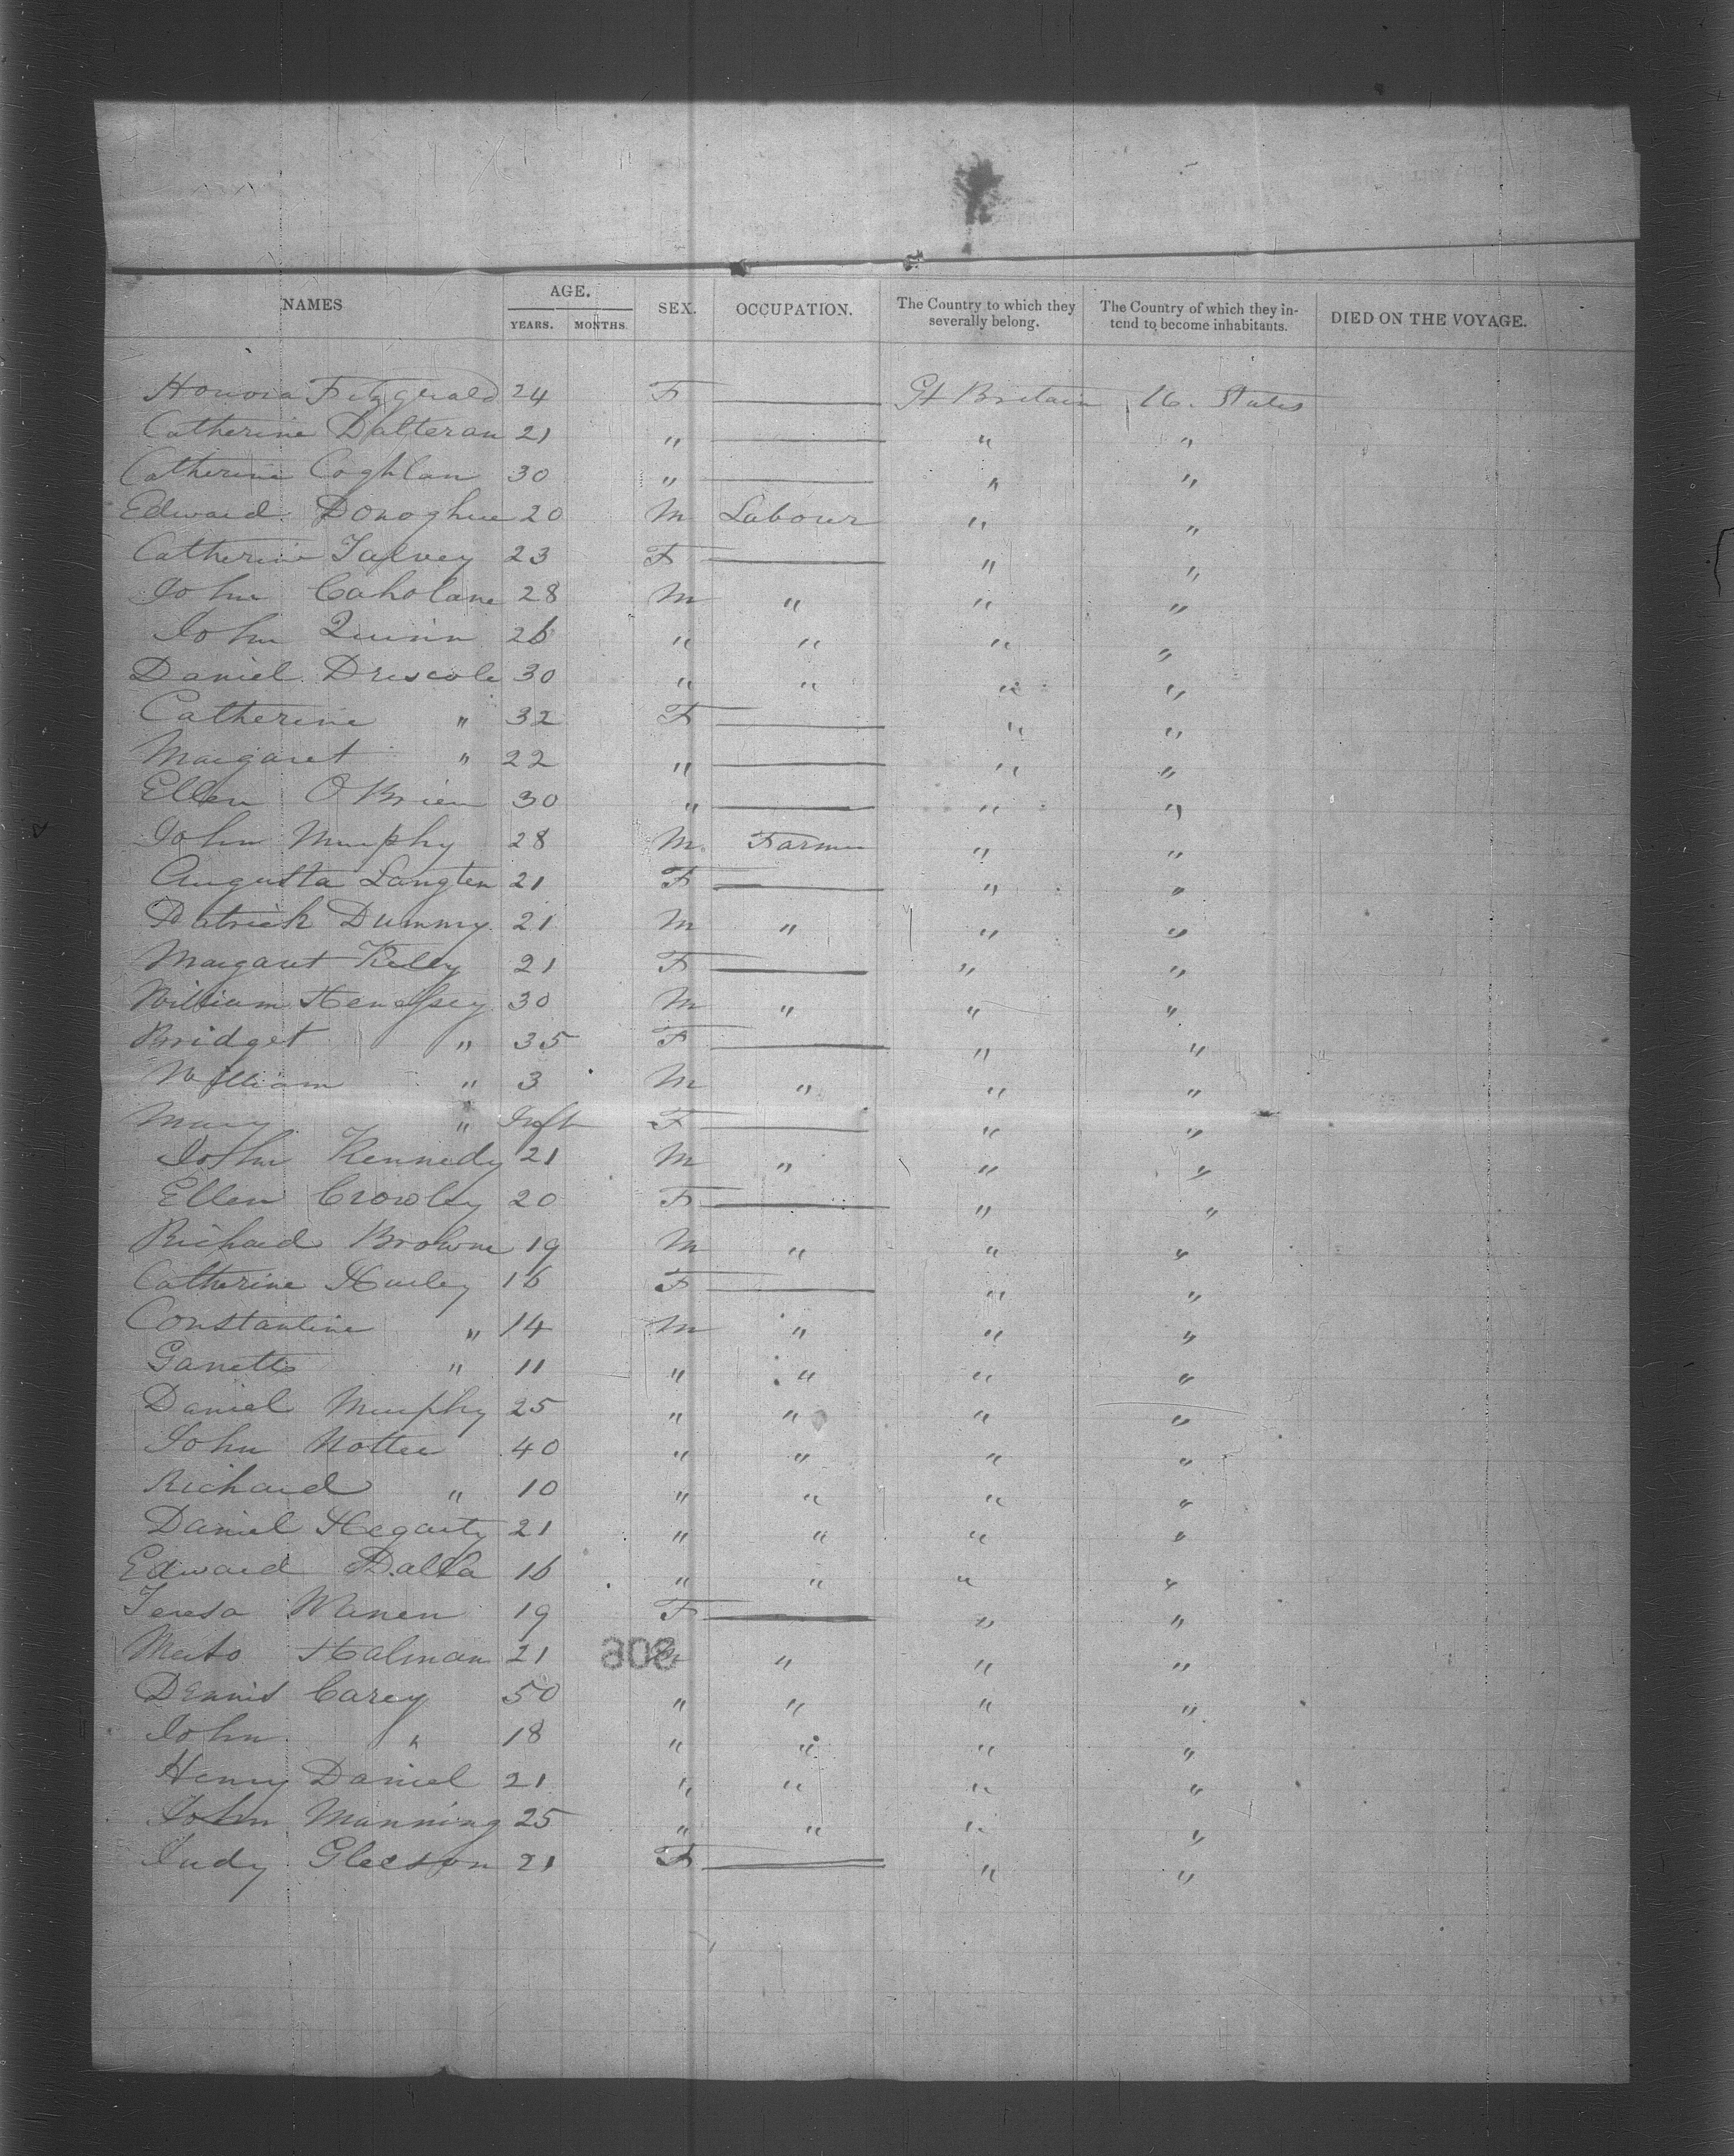 NAMES AGE. YEARS. MONTHS. SEX. OCCUPATION. The Country to which they severally belong. The Country of which they intend to become inhabitants. DIED ON THE VOYAGE.
Honora Fitzgerald 24 F — Gt Britain U. States
Catherine Dalteran 21 " — " "
Catherine Coghlan 30 " — " "
Edward Donoghue 20 M Labour " "
Catherine Falvey 23 F — " "
John Caholane 28 M " " "
John Quinn 26 " " " "
Daniel Driscole 30 " " " "
Catherine " 32 F — " "
Margaret " 22 " — " "
Ellen O Brien 30 " — " "
John Murphy 28 M. Farmer " "
Augusta Langten 21 F — " "
Patrick Dummy 21 M " " "
Margaret Keley 21 F — " "
William Henessey 30 M " " "
Bridget " 35 F — " "
William " 3 M " " "
Mary " Inft F — " "
John Kennedy 21 M " " "
Ellen Crowley 20 F — " "
Richard Browne 19 M " " "
Catherine Hurley 16 F — " "
Constantine " 14 M " " "
Garrett " 11 " " " "
Daniel Murphy 25 " " " "
John Notter 40 " " " "
Richard " 10 " " " "
Daniel Hegarty 21 " " " "
Edward 16 " " " "
Teresa 19 F — " "
Halman 21 M " " "
Dennis Carey 50 " " " "
John " 18 " " " "
Henry Daniel 21 " " " "
John Manning 25 " " " "
Judy Gleeson 21 F — " "